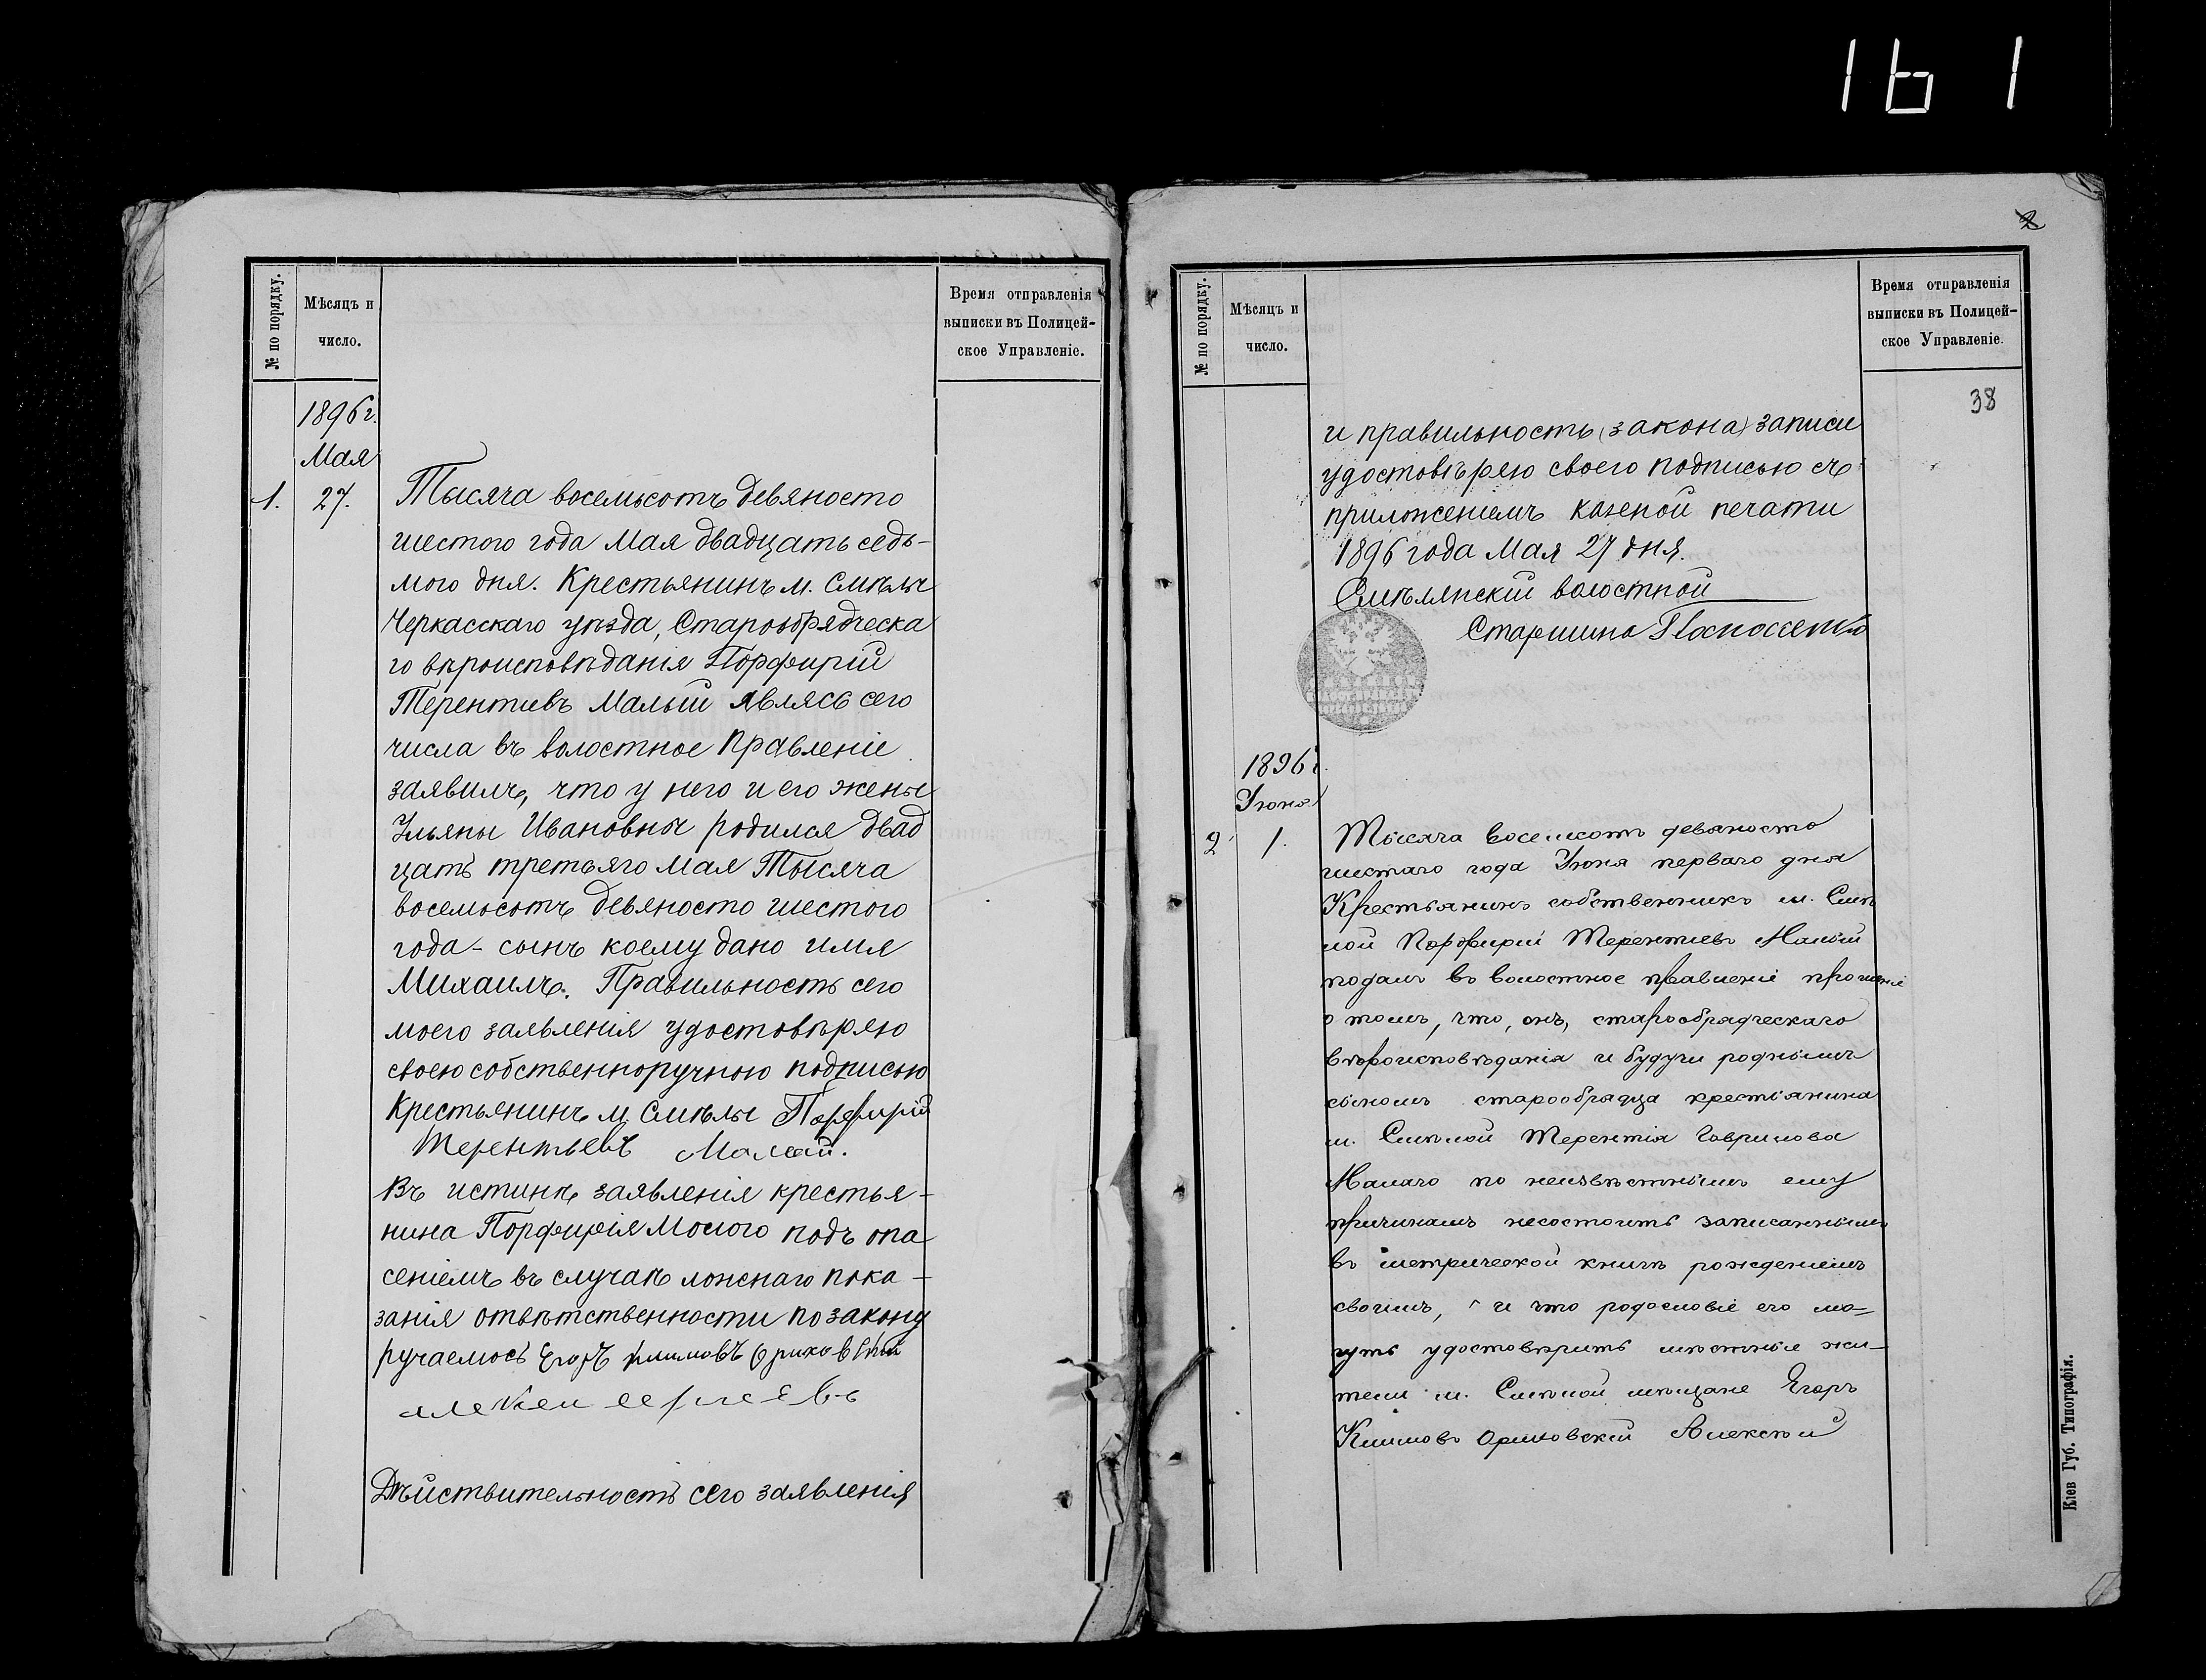 161
№ по порядку.
Мѣсяцъ и
число.
Время отправленія
выписки въ Полицей-
ское Управленіе.
1896 г.
Мая
1. 27.
Тысяча восемьсотъ девяносто
шестого года Мая двадцать седь-
мого дня. Крестьянинъ м. Смѣлы
Черкасскаго уѣзда, Старообрядческа
го вѣроисповѣданія Порфирій
Терентиевъ Малый являсь сего
числа въ волостное Правленіе
заявилъ, что у него и его жены
Ульяны Ивановны родился двад
цать третьяго Мая Тысяча
восемьсотъ девяносто шестого
года - сынъ коему дано имя
Михаилъ. Правильность сего
моего заявленія удостовѣряю
своею собственноручною подписью
Крестьянинъ м. Смѣлы Порфирій
Терентьевъ Малый.
Въ истинѣ заявленія крестья-
нина Порфирія Малого подъ опа
сеніемъ въ случаѣ ложнаго пока-
занія отвѣтственности по закону
ручаемось Егоръ Климовъ
Дѣйствительность сего заявленія
2
№ по порядку.
Мѣсяцъ и
число.
Время отправленія
выписки въ Полицей-
ское Управленіе.
38
и правильность (закона) записи
удостовѣряю своего подписью съ
приложеніемъ казеной печати
1896 года Мая 27 дня.
Смѣлянскій волостной
Старшина
1896 г.
Іюня
2 1.
Тысяча восемсотъ девяносто
шестаго года Іюня перваго дня
Крестьянинъ собственникъ м. Смѣ
лой Порфирій Терентиевъ Малый
подалъ въ волостное правленіе прошеніе
о томъ, что, онъ, старообрядческаго
вѣроисповѣданія и будучи роднымъ
сыномъ старообрядца крестьянина
м. Смѣлой Терентія Гаврилова
Малаго по неизвѣстнымъ ему
причинамъ несостоитъ записаннымъ
въ метрической книгѣ рожденіемъ
своимъ, и что родословіе его мо-
гутъ удостовѣрить мѣстные жи-
тели м. Смѣлой мѣщане Егоръ
Климовъ Ориковскій Алексѣй
Кіев Губ. Типографія.